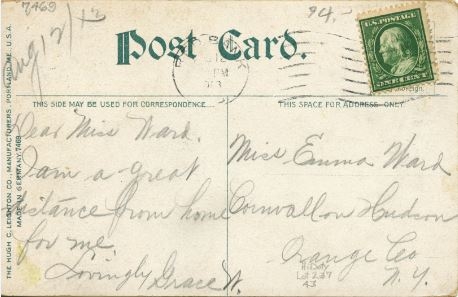 7469
94.
Aug 12/12
Post Card.
U.S. POSTAGE
ONE CENT
THIS SIDE MAY BE USED FOR CORRESPONDENCE.
THIS SPACE FOR ADDRESS ONLY.
THE HUGH C. LEIGHTON CO., MANUFACTURERS, PORTLAND, ME., U.S.A.
MADE IN GERMANY 7469
Dear Miss Ward.
I am a great
distance from home
for me.
Lovingly Grace W.
Miss Emma Ward
Cornwall on Hudson
Orange Co
N.Y.
Lot 237
43